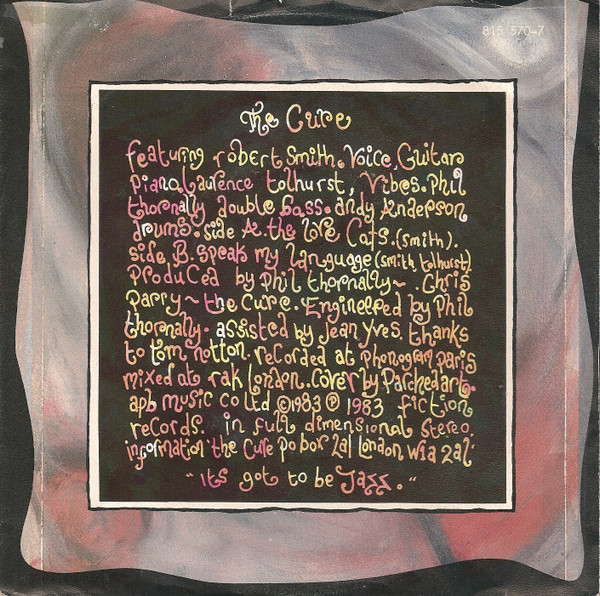 815 570-7
The Cure
featuring robert smith. Voice, Guitar
piano, Laurence tolhurst, Vibes. Phil
thornally double bass. andy Anderson
drums. side A. the love Cats. (smith).
side B. speak my language (smith, tolhurst).
Produced by Phil thornally~. Chris
Parry~ the Cure. Engineered by Phil
thornally. assisted by Jean Yves. thanks
to tom notton. recorded at phonogram paris
mixed at rak london. cover by Parched art.
apb music co ltd ©1983 ℗ 1983 fiction
records. in full dimensional stereo.
information the Cure po box 2al london w1a 2al
"its got to be Jazz."